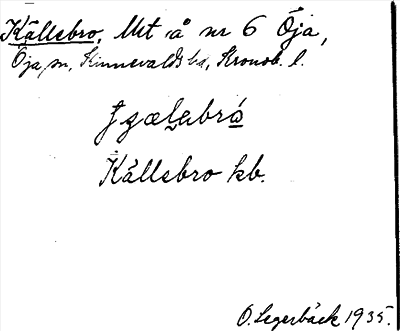 Källebro, Utt å nr 6 Öja,
Öja sn, Kinnevalds hd, Kronob. l.
Källebro kb.
O. Legerbäck 1935.